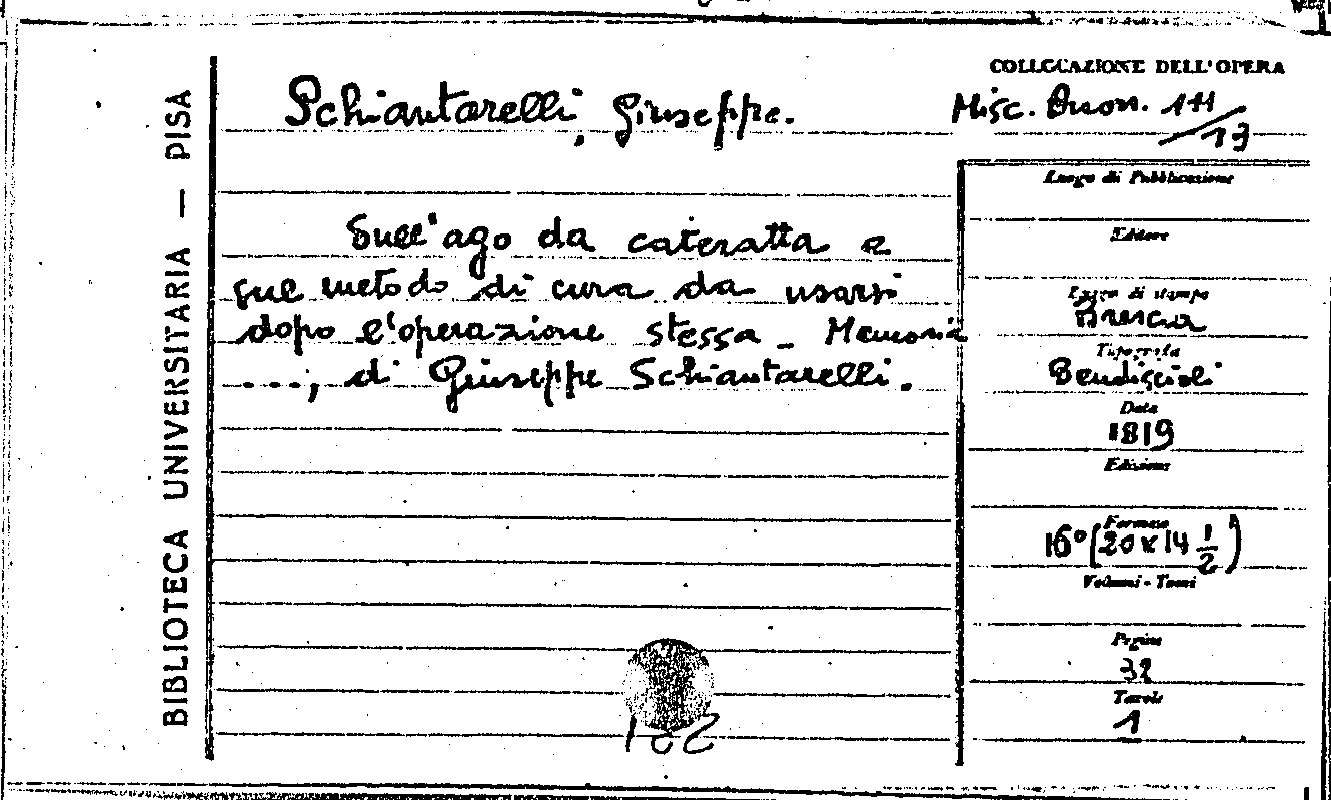 BIBLIOTECA UNIVERSITARIA — PISA
Schiantarelli, Giuseppe.
COLLOCAZIONE DELL'OPERA
Misc. Buon. 111/13
Sull'ago da cateratta e
sul metodo di cura da usarsi
dopo l'operazione stessa - Memoria
..., di Giuseppe Schiantarelli.
Luogo di Pubblicazione
Editore
Luogo di stampa
Brescia
Tipografia
Bendiscioli
Data
1819
Edizione
Formato
16° (20 x 14 1/2)
Volumi - Tomi
Pagine
32
Tavole
1